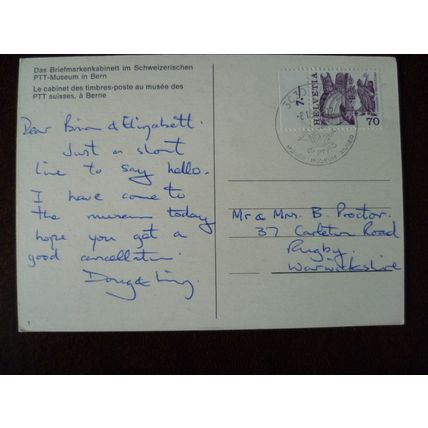 Das Briefmarkenkabinett im Schweizerischen
PTT-Museum in Bern
Le cabinet des timbres-poste au musée des
PTT suisses, à Berne
Dear Brian & Elizabeth.
Just a short
line to say hello.
I have come to
the museum today
hope you get a
good cancellation.
Doug & Ling.
HELVETIA
70
Mr & Mrs. B. Proctor.
37 Carleton Road
Rugby.
Warwickshire
1